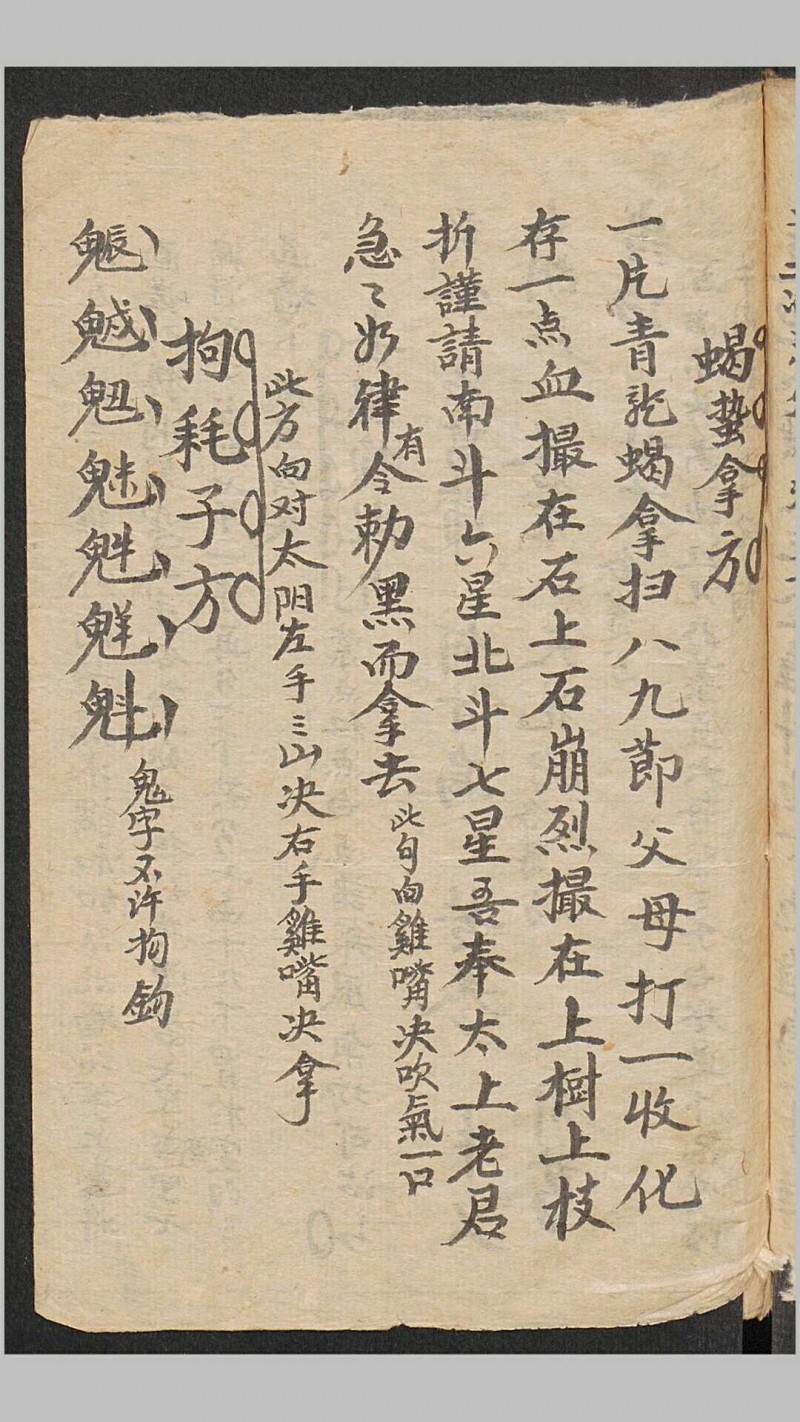 蝎蛰拿方
一片青龙蝎拿扫八九節父母打一收化
存一点血撮在石上石崩烈撮在上樹上枝
折謹請南斗六星北斗七星吾奉太上老君
急〻如律令勅黑而拿去此句向雞嘴决吹氣一口
有
此方向对太阳左手三山决右手雞嘴决拿
拘耗子方
魁
鬼字不许拘鈎